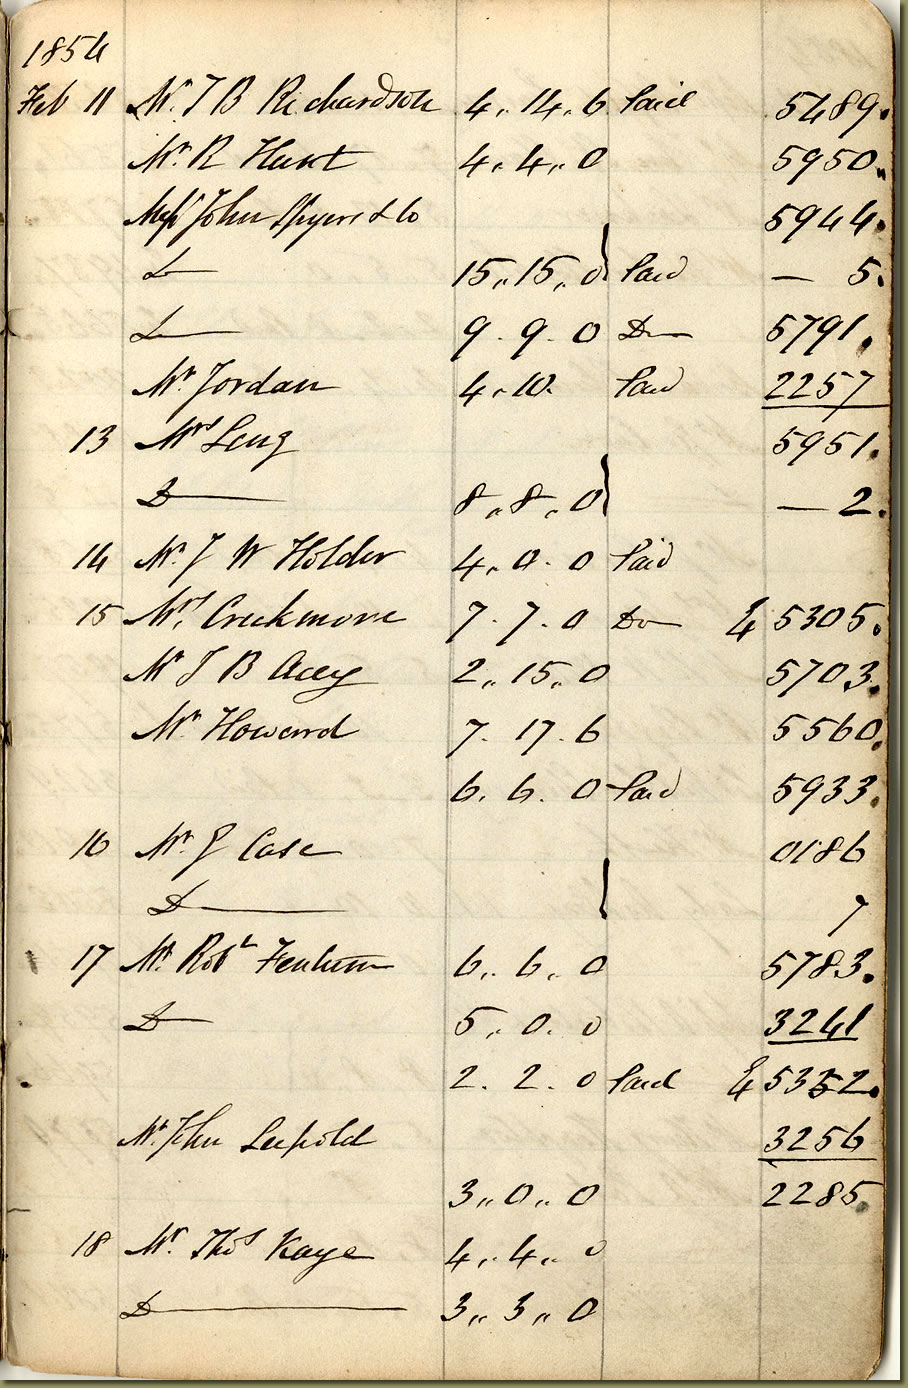 1854
Feb 11 Mr. T B Richardson 4,, 14,, 6 Paid 5489.
Mr. R Hunt 4,, 4,, 0 5950,,
Messrs John Spyers & Co 5944.
Do 15,, 15,, 0 Paid — 5.
Do 9. 9. 0 Do 5791.
Mr. Jordan 4,, 10. Paid 2257
13 Mrs Long 5951.
Do 8,, 8,, 0 — 2.
14 Mr. J W Holder 4,, 0. 0 Paid
15 Mrs. Creekmore 7. 7. 0 Do 5305.
Mr J B Acey 2,, 15,, 0 5703.
Mr. Howard 7. 17. 6 5560.
6. 6. 0 Paid 5933.
16 Mr. J Case 0186
Do 7
17 Mr. Robt 6,, 6,, 0 5783.
Do 5,, 0. 0 3241
2. 2. 0 Paid 5352.
Mr. John Leopold 3256
3,, 0,, 0 2285.
18 Mr. Thos Kaye 4,, 4,, 0
Do 3,, 3,, 0